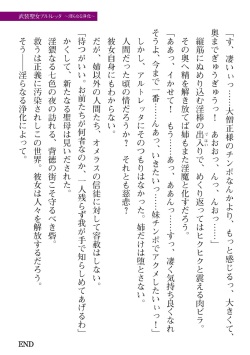 武装聖女アルトレッタ ～淫らなる浄化～
「す、凄いぃっ……大僧正様のチンポなんかより、もっと感じるっ、大きくて、
奥までぎゅうぎゅうっ！　あおおっ、んっ、んおっ……」
縦筋にぬめり込む淫棒の出入りで、めくり返ってはヒクヒクと震える肉ビラ。
その奥へ精を解き放てば姉もまた淫魔と化すだろう。
「ああっ、イかせて！　あああっ……すっ、凄く気持ち良くなれ
そうよぉ、今まで一番……あっ、いきたいっ……妹チンポでアクメしたいぃーっ！」
しかし、アルトレッタにそのつもりはなかった。姉だけは堕とさない。
人間だった頃の情だろうか？　それとも慈悲？
だが、姉以外の人間たち、オメラスの信徒に対して容赦はしない。
「待つがいい、お前たちが何者なのか、一人残らず我が手で知らしめてあげるわ」
かくして、新たなる聖母は見いだされた。
淫猥なる七色の夜の訪れる、背徳の街こそ守るべき砦。
救うは正義に汚染されしこの世界。彼女は人々を解放するだろう。
そう――淫らなる浄化によって。
END